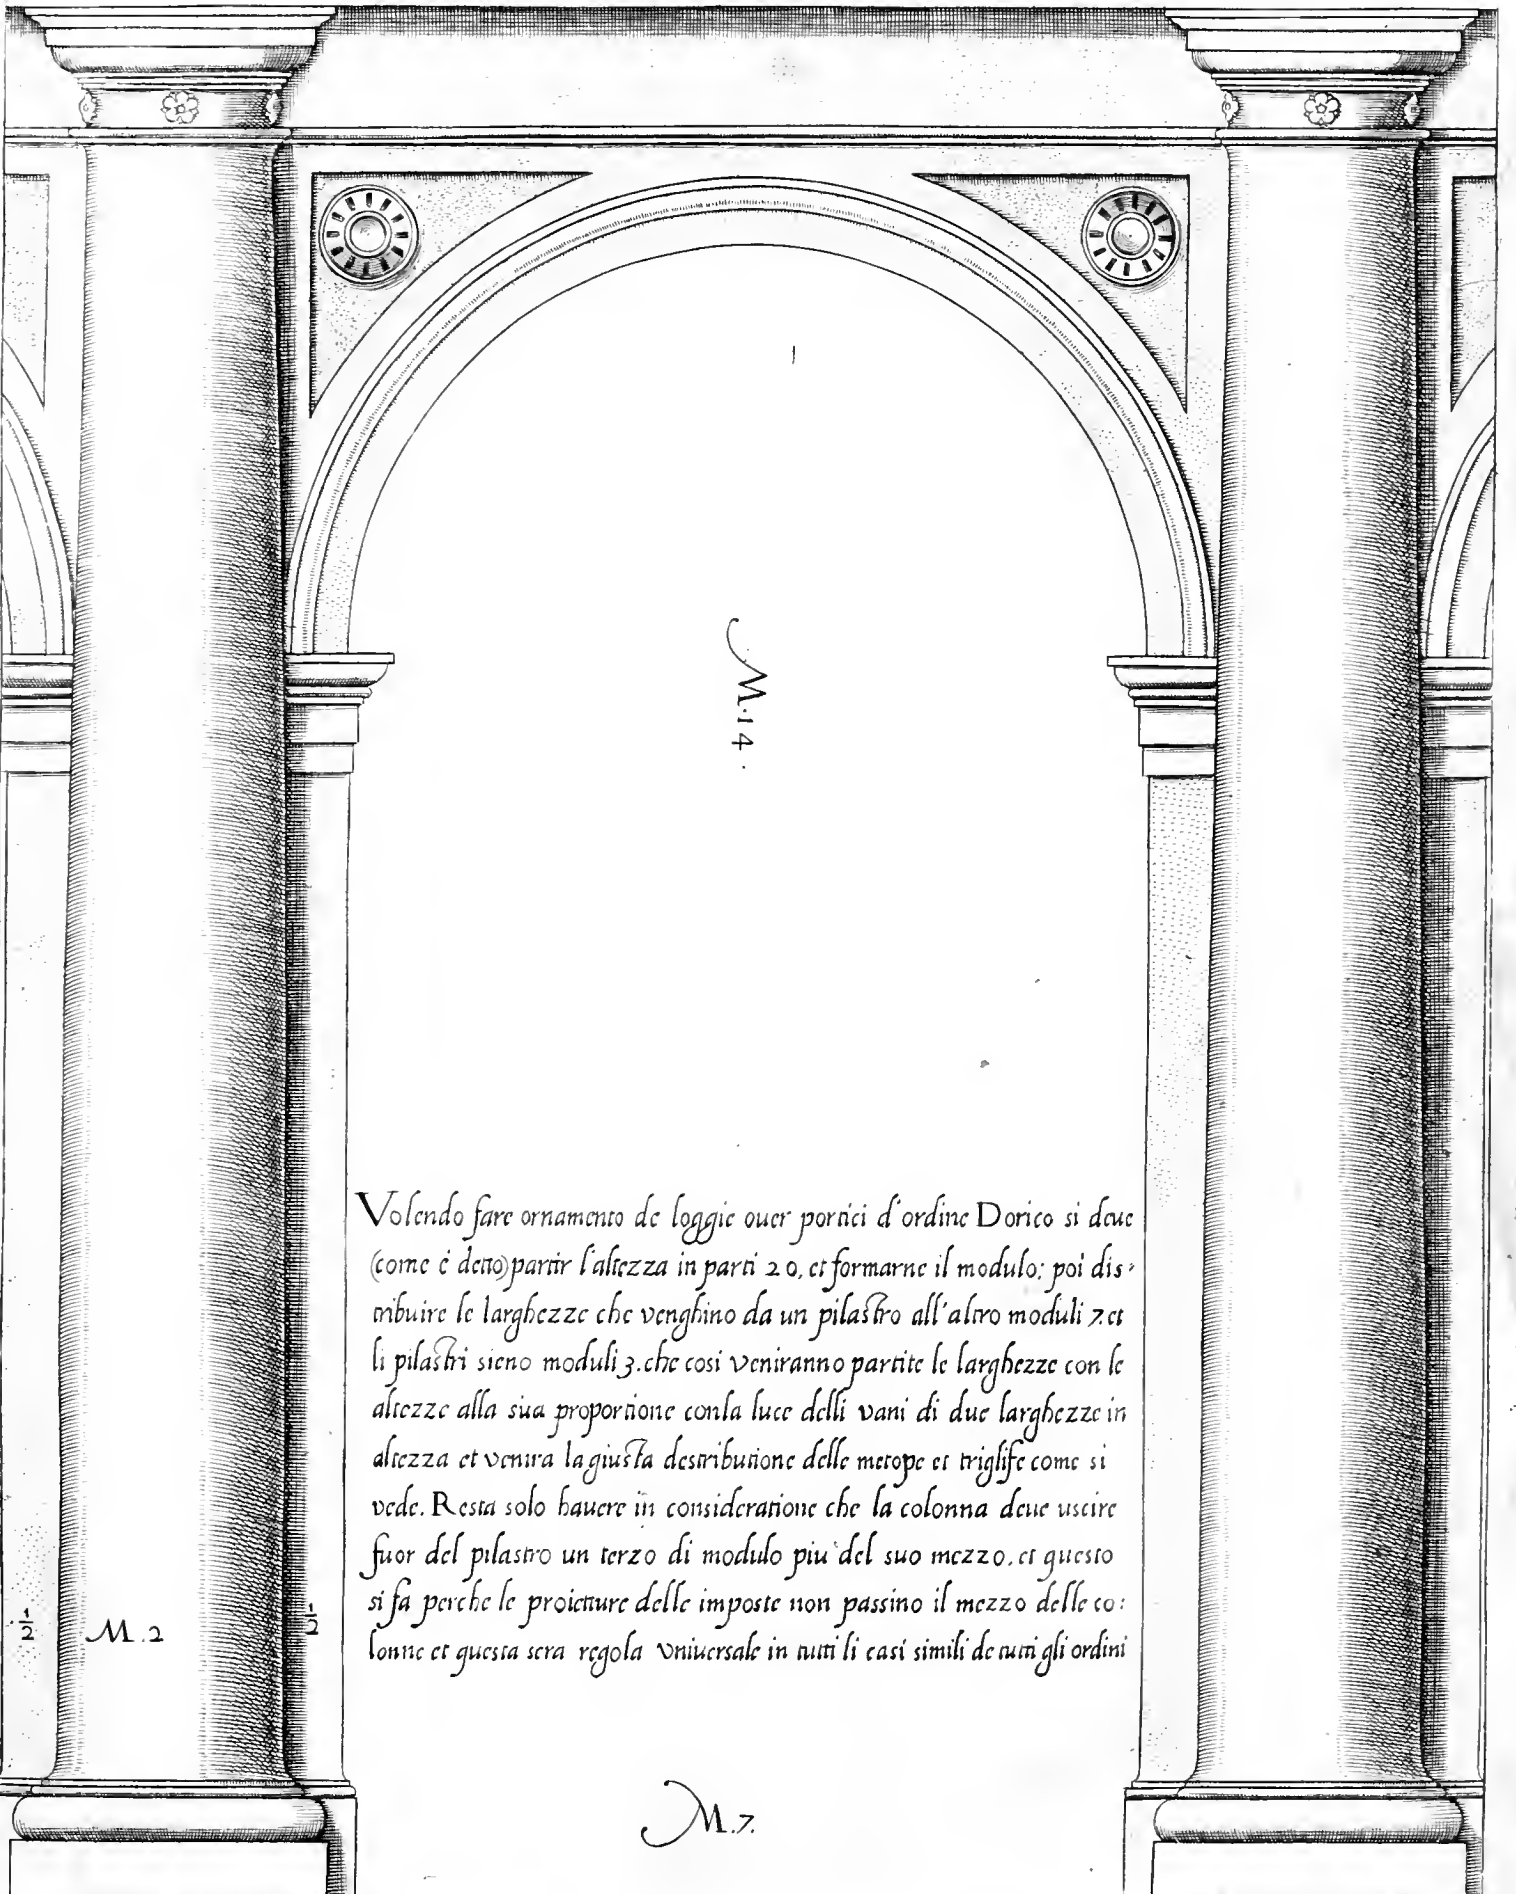 M.14.
Volendo fare ornamento de loggie ouer portici d'ordine Dorico si deue
(come è detto) partir l'altezza in parti 20, et formarne il modulo; poi dis-
tribuire le larghezze che venghino da un pilastro all'altro moduli 7. et
li pilastri sieno moduli 3. che cosi veniranno partite le larghezze con le
altezze alla sua proportione con la luce delli vani di due larghezze in
altezza et venira la giusta destributione delle metope et triglife come si
vede. Resta solo hauere in consideratione che la colonna deue uscire
fuor del pilastro un terzo di modulo piu del suo mezzo, et questo
si fa perche le proietture delle imposte non passino il mezzo delle co:
lonne et questa sera regola vniuersale in tutti li casi simili de tutti gli ordini
1/2 M.2 1/2
M.7.